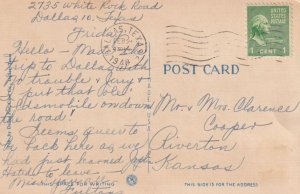 2735 White Rock Road
Dallas 10, Texas
Friday
Hello - Made the
trip to Dallas with
no trouble & Jerry &
I put that ole'
Oldsmobile on down
the road!
Seems queer to
be back here as we
had just learned
Hated to leave.
UNITED STATES
POSTAGE
1 CENT 1
TEXAS
1948
POST CARD
Mr & Mrs. Clarence
Cooper
Riverton
Kansas
THIS SPACE FOR WRITING
THIS SIDE IS FOR THE ADDRESS